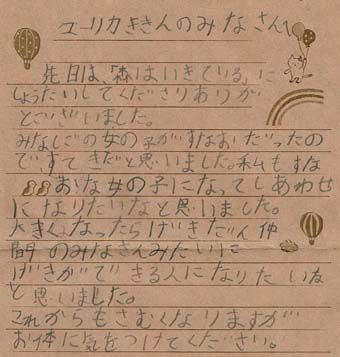 ユーリカききんのみなさんへ
先日は、「森はいきている」に
しょうたいしてくださりありが
とございました。
みなしごの女の子がすなおだったの
ですてきだと思いました。私もすな
おな女の子になってしあわせ
になりたいなと思いました。
大きくなったらげきだん仲
間のみなさんみたいに
げきができる人になりたいな
と思いました。
これからもさむくなりますが
お体に気をつけてください。